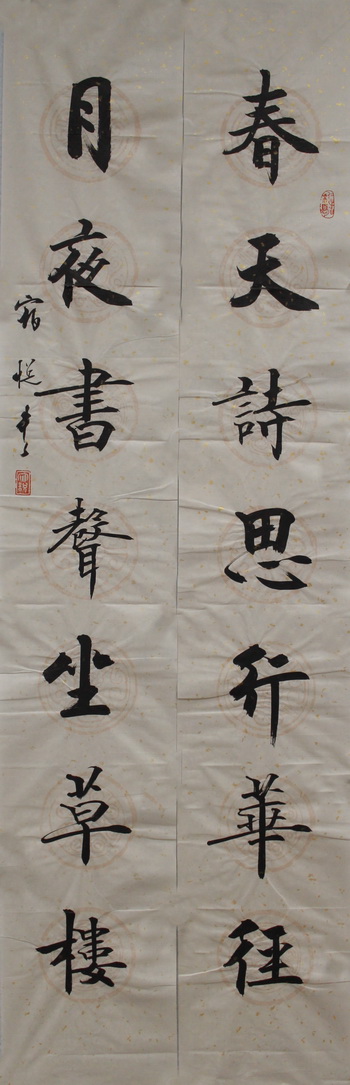 春天詩思行華徑
月夜書聲坐草樓